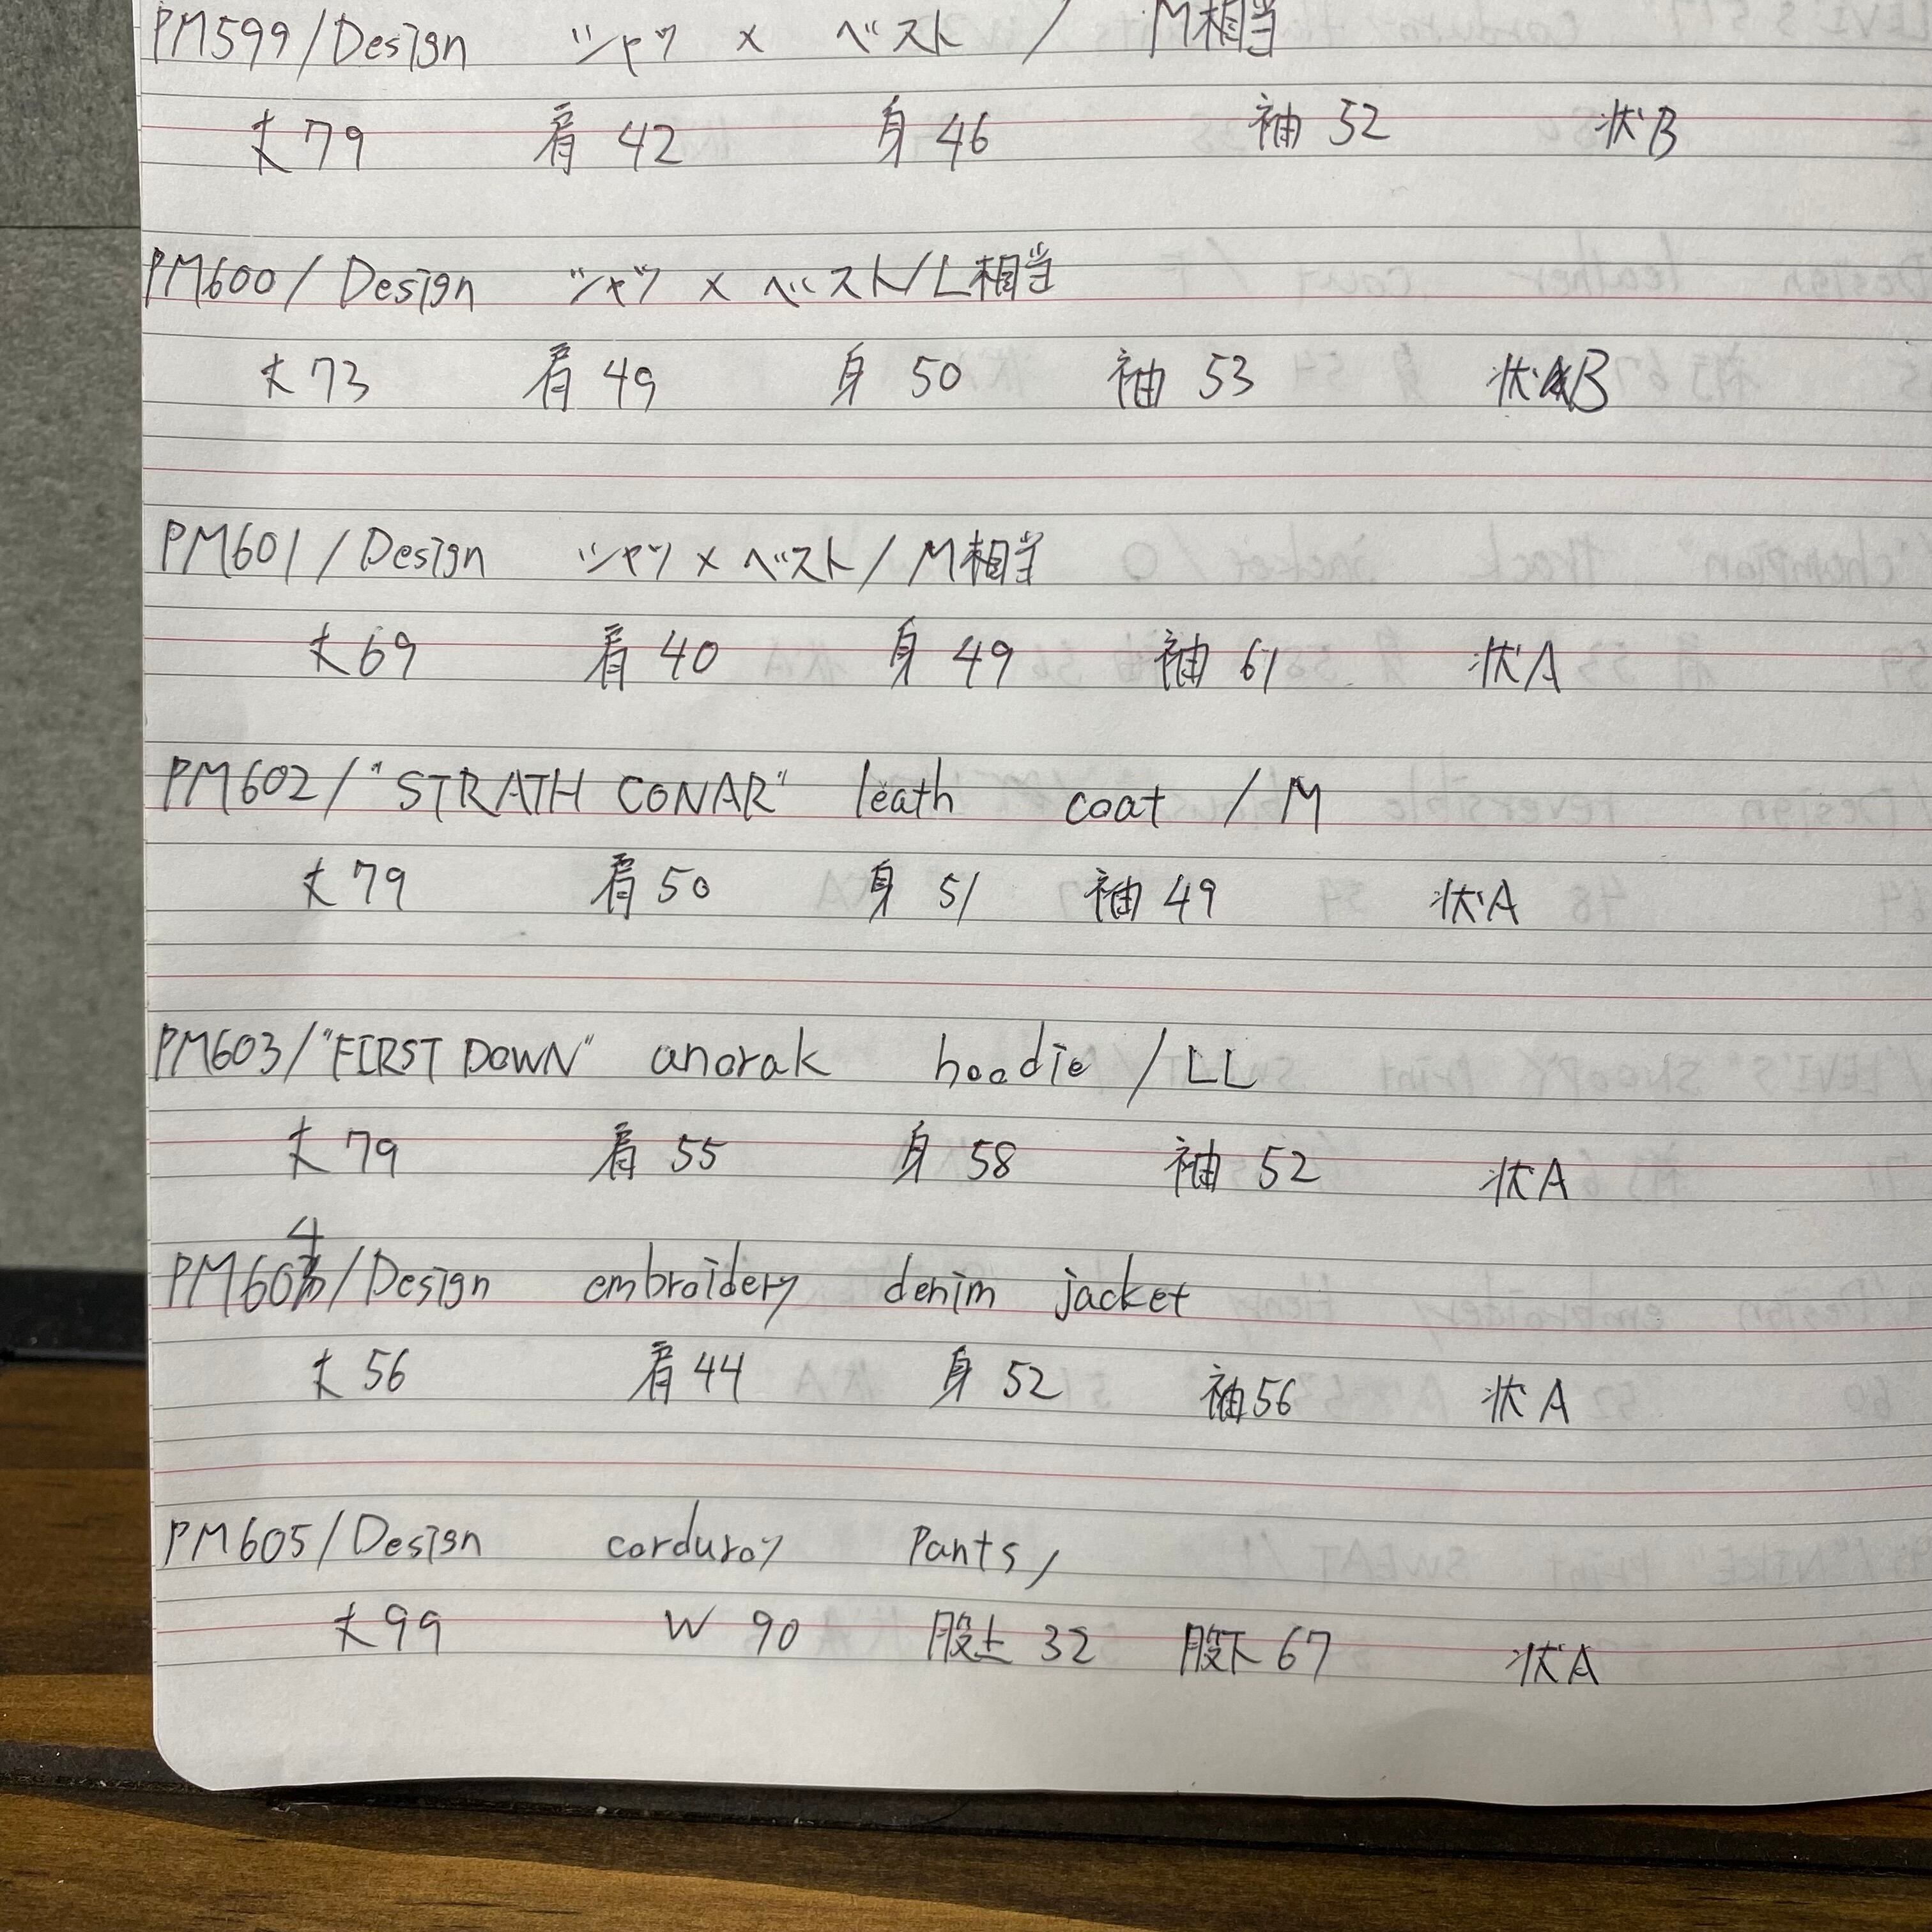 PM599/Design シャツ × ベスト / M相当
丈79 肩42 身46 袖52 状B
PM600/Design シャツ × ベスト/L相当
丈73 肩49 身50 袖53 状B
PM601/Design シャツ×ベスト/M相当
丈69 肩40 身49 袖61 状A
PM602/"STRATH CONAR" leath coat /M
丈79 肩50 身51 袖49 状A
PM603/"FIRST DOWN" anorak hoodie /LL
丈79 肩55 身58 袖52 状A
PM604/Design embroidery denim jacket
丈56 肩44 身52 袖56 状A
PM605/Design corduroy Pants/
丈99 W 90 股上32 股下67 状A